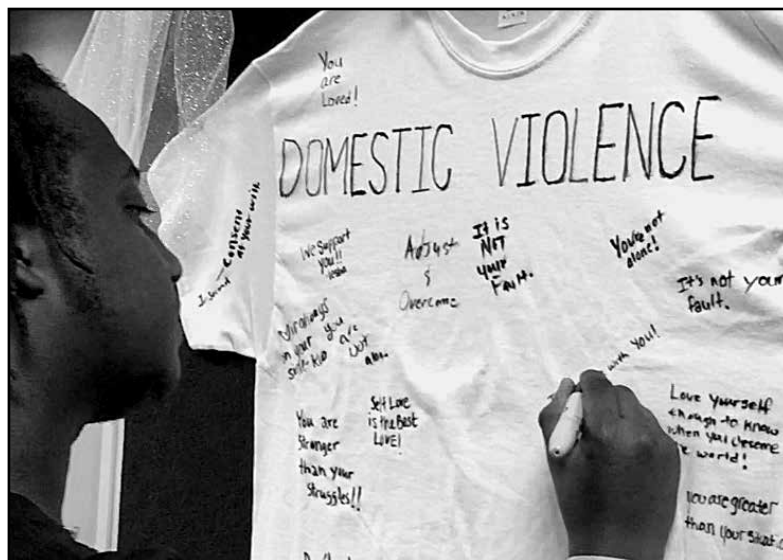 You
are
Loved!
DOMESTIC VIOLENCE
Consent
at your will
We Support
you!!
Adjust
&
Overcome
It is
NOT
your
Fault.
You're not
alone!
It's not your
fault.
on your
you
are
not
with you!
You are
Stronger
than your
Struggles!!
Self Love
is the Best
LOVE!
Love yourself
enough to know
when you deserve
world!
you are greater
than your